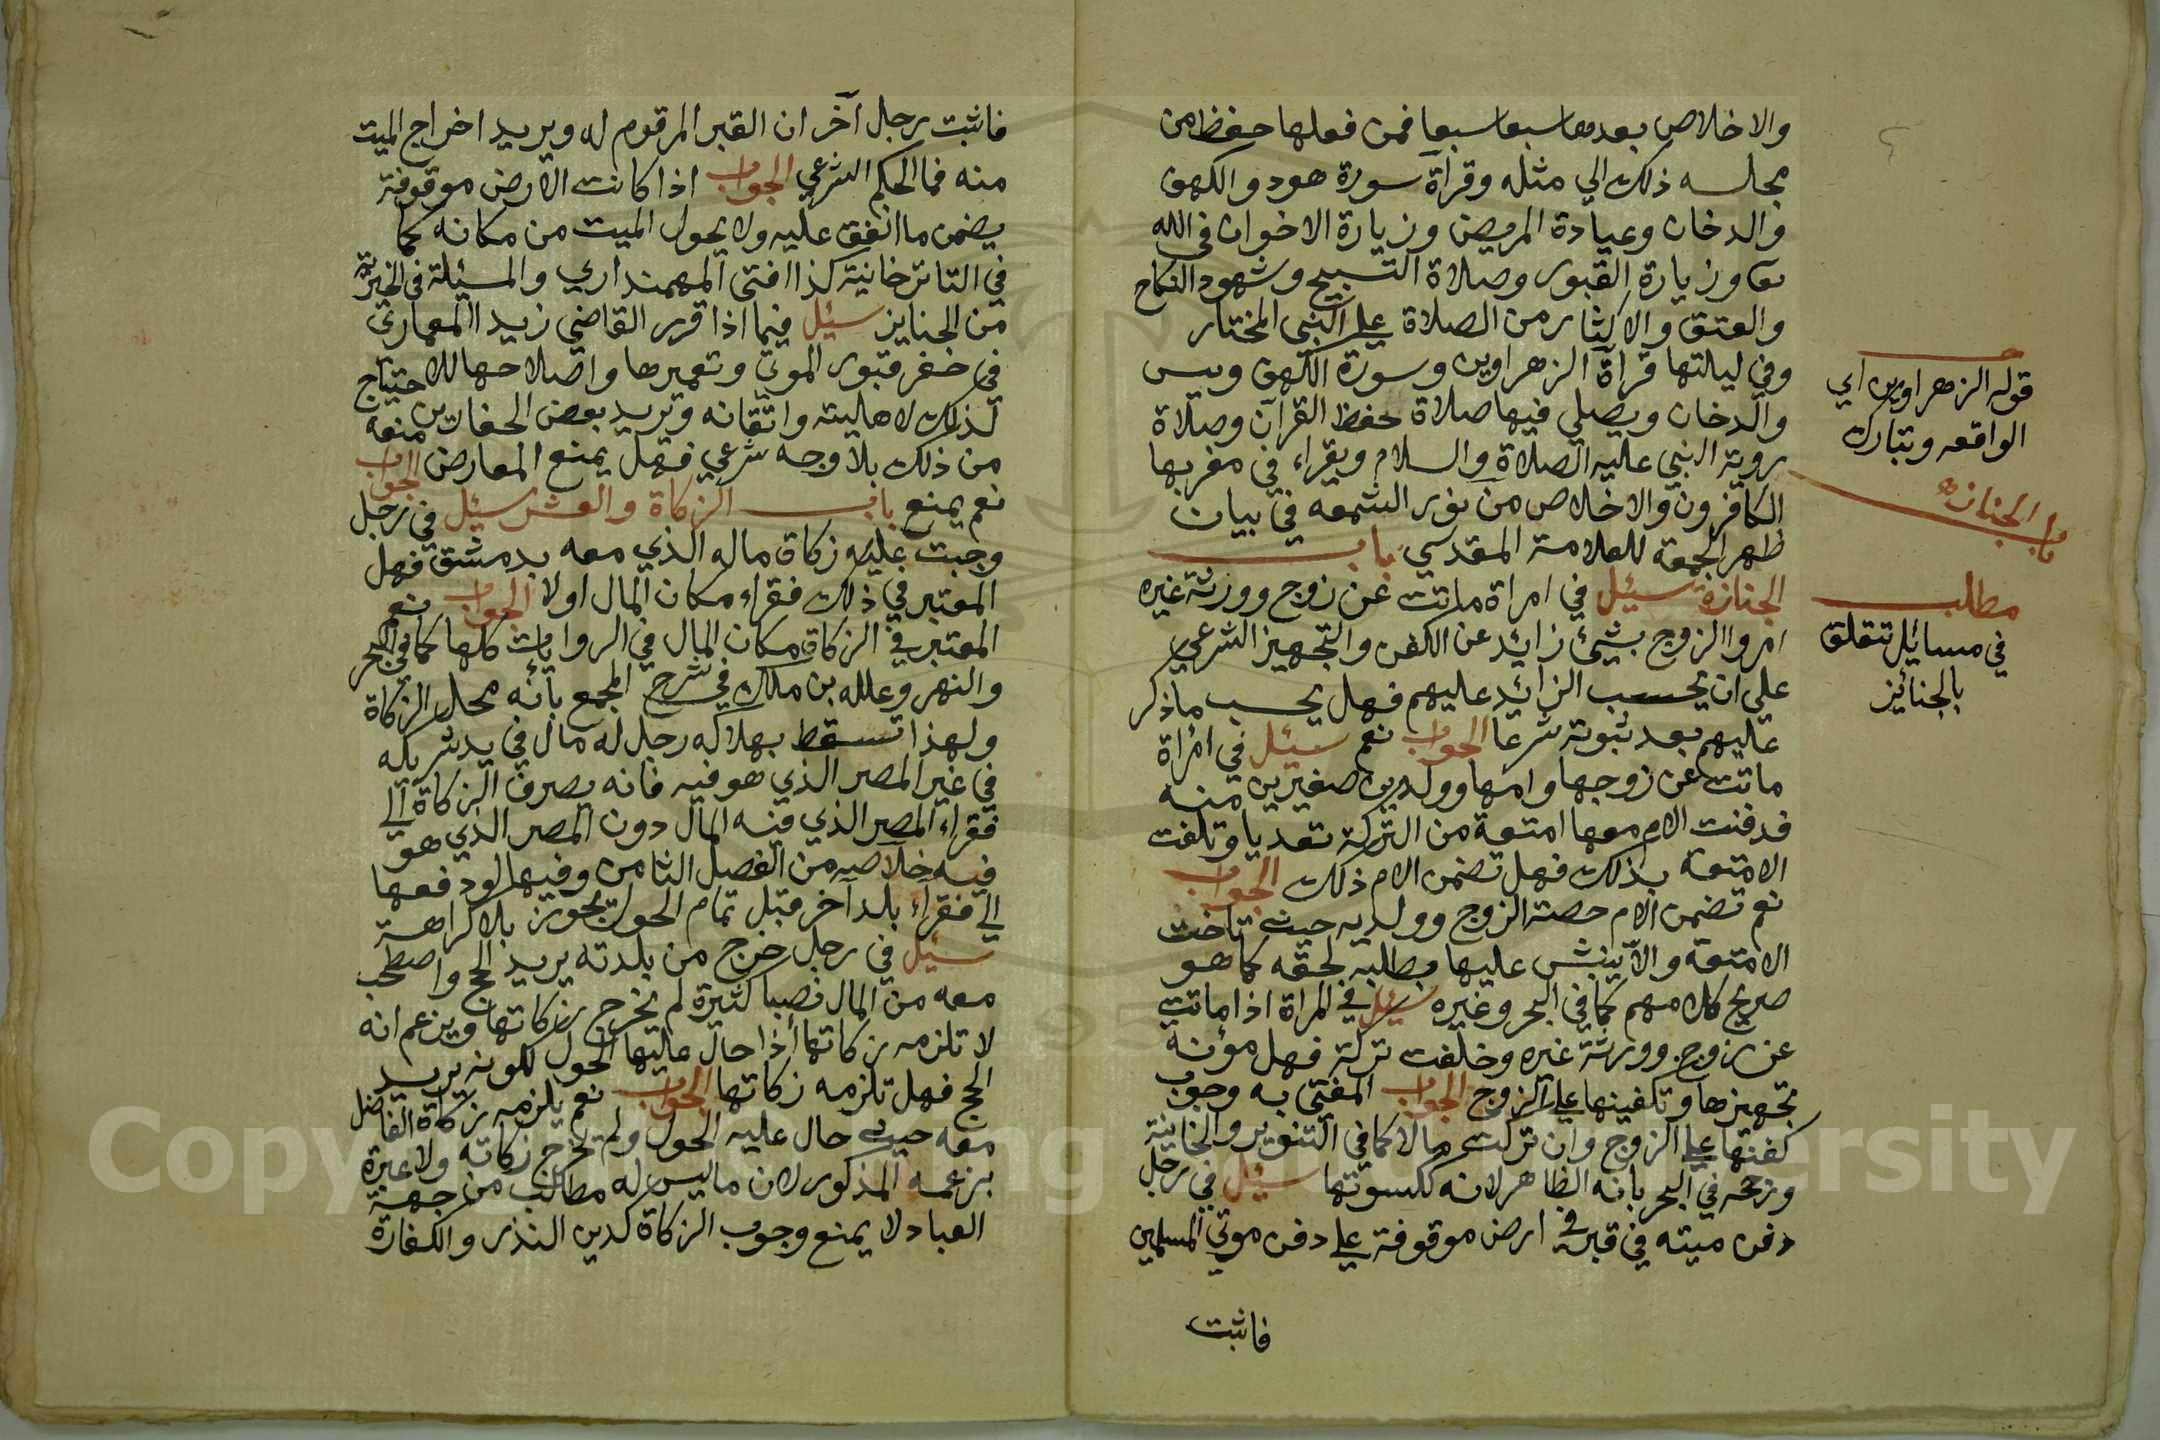 والاخلاص بعدها سبعا سبعا فمن فعلها حفظ من
مجلسه ذلك الي مثله وقرآة سورة هود والكهف
والدخان وعيادة المريض وزيارة الاخوان في الله
تعا وزيارة القبور وصلاة التسبيح وشهود النكاح
والعتق والاكثار من الصلاة على النبي المختار
وفي ليلتها قرآة الزهراوين وسورة الكهف ويس
والدخان ويصلي فيها صلاة حفظ القرآن وصلاة
روية النبي عليه الصلاة والسلام ويقراء في مغربها
الكافرون والاخلاص من نور الشمعه في بيان
ظهر الجمعة للعلامة المقدسي باب
الجنازة سئيل في امراة ماتت عن زوج وورثة غيره
امروا الزوج بشيئ زائد عن الكفن والتجهيز الشرعي
على ان يحسب الزائد عليهم فهل يحسب ما ذكر
عليهم بعد ثبوته شرعا الجواب نعم سيئل في امرأة
ماتت عن زوجها وامها وولدين صغيرين منه
فدفنت الام معها امتعة من التركة تعديا وتلفت
الامتعة بذلك فهل تضمن الام ذلك الجواب
نعم تضمن الام حصة الزوج وولديه حيث تلفت
الامتعة والا ينبش عليها بطلبه لحقه كما هو
صريح كلامهم كما في البحر وغيره سيئل في المراة اذا ماتت
عن زوج وورثة غيره وخلفت تركة فهل مؤنة
تجهيزها وتكفينها على الزوج الجواب المفتى به وجوب
كفنها على الزوج وان تركت مالا كما في التنوير والخانية
ورجحه في البحر بانه الظاهر لانه ككسوتها سيئل في رجل
دفن ميته في قبر في ارض موقوفة على دفن موتي المسلمين
فاثبت
قوله الزهراوين اي
الواقعه وتبارك
باب الجنازه
مطلب
في مسائل تتعلق
بالجنائز
فاثبت رجل آخر ان القبر المرقوم له ويريد اخراج الميت
منه فما الحكم الشرعي الجواب اذا كانت الارض موقوفة
يضمن ما انفق عليه ولا يحول الميت من مكانه كما
في التاترخانية كذا افتى المهمنداري والمسئلة في الخيرية
من الجنايز سئيل فيما اذا قرر القاضي زيدا المعماري
في حفر قبور الموتي وتعميرها واصلاحها للاحتياج
لذلك لاهليته واتقانه ويريد بعض الحفارين منعه
من ذلك بلا وجه شرعي فهل يمنع المعارض الجواب
نعم يمنع باب الزكاة والعشر سيئل في رجل
وجبت عليه زكاة ماله الذي معه بدمشق فهل
المعتبر في ذلك فقراء مكان المال اولا الجواب نعم
المعتبر في الزكاة مكان المال في الروايات كلها كما في البحر
والنهر وعلله بن ملك في شرح المجمع بانه محل الزكاة
ولهذا تسقط بهلاكه رجل له مال في يد شريكه
في غير المصر الذي هو فيه فانه يصرف الزكاة الي
فقراء المصر الذي فيه المال دون المصر الذي هو
فيه خلاصه من الفصل الثامن وفيها لو دفعها
الي فقراء بلد آخر قبل تمام الحول يجوز بلا كراهة
سيئل في رجل خرج من بلدته يريد الحج واصطحب
معه من المال نصبا كثيرة لم يخرج زكاتها ويزعم انه
لا تلزمه زكاتها اذا حال عليها الحول لكونه يريد
الحج فهل تلزمه زكاتها الجواب نعم يلزمه زكاة الفاضل
معه حيث حال عليه الحول ولم تخرج زكاته ولا عبرة
بزعمه المذكور لان ما ليس له مطالب من جهة
العباد لا يمنع وجوب الزكاة كدين النذر والكفارة